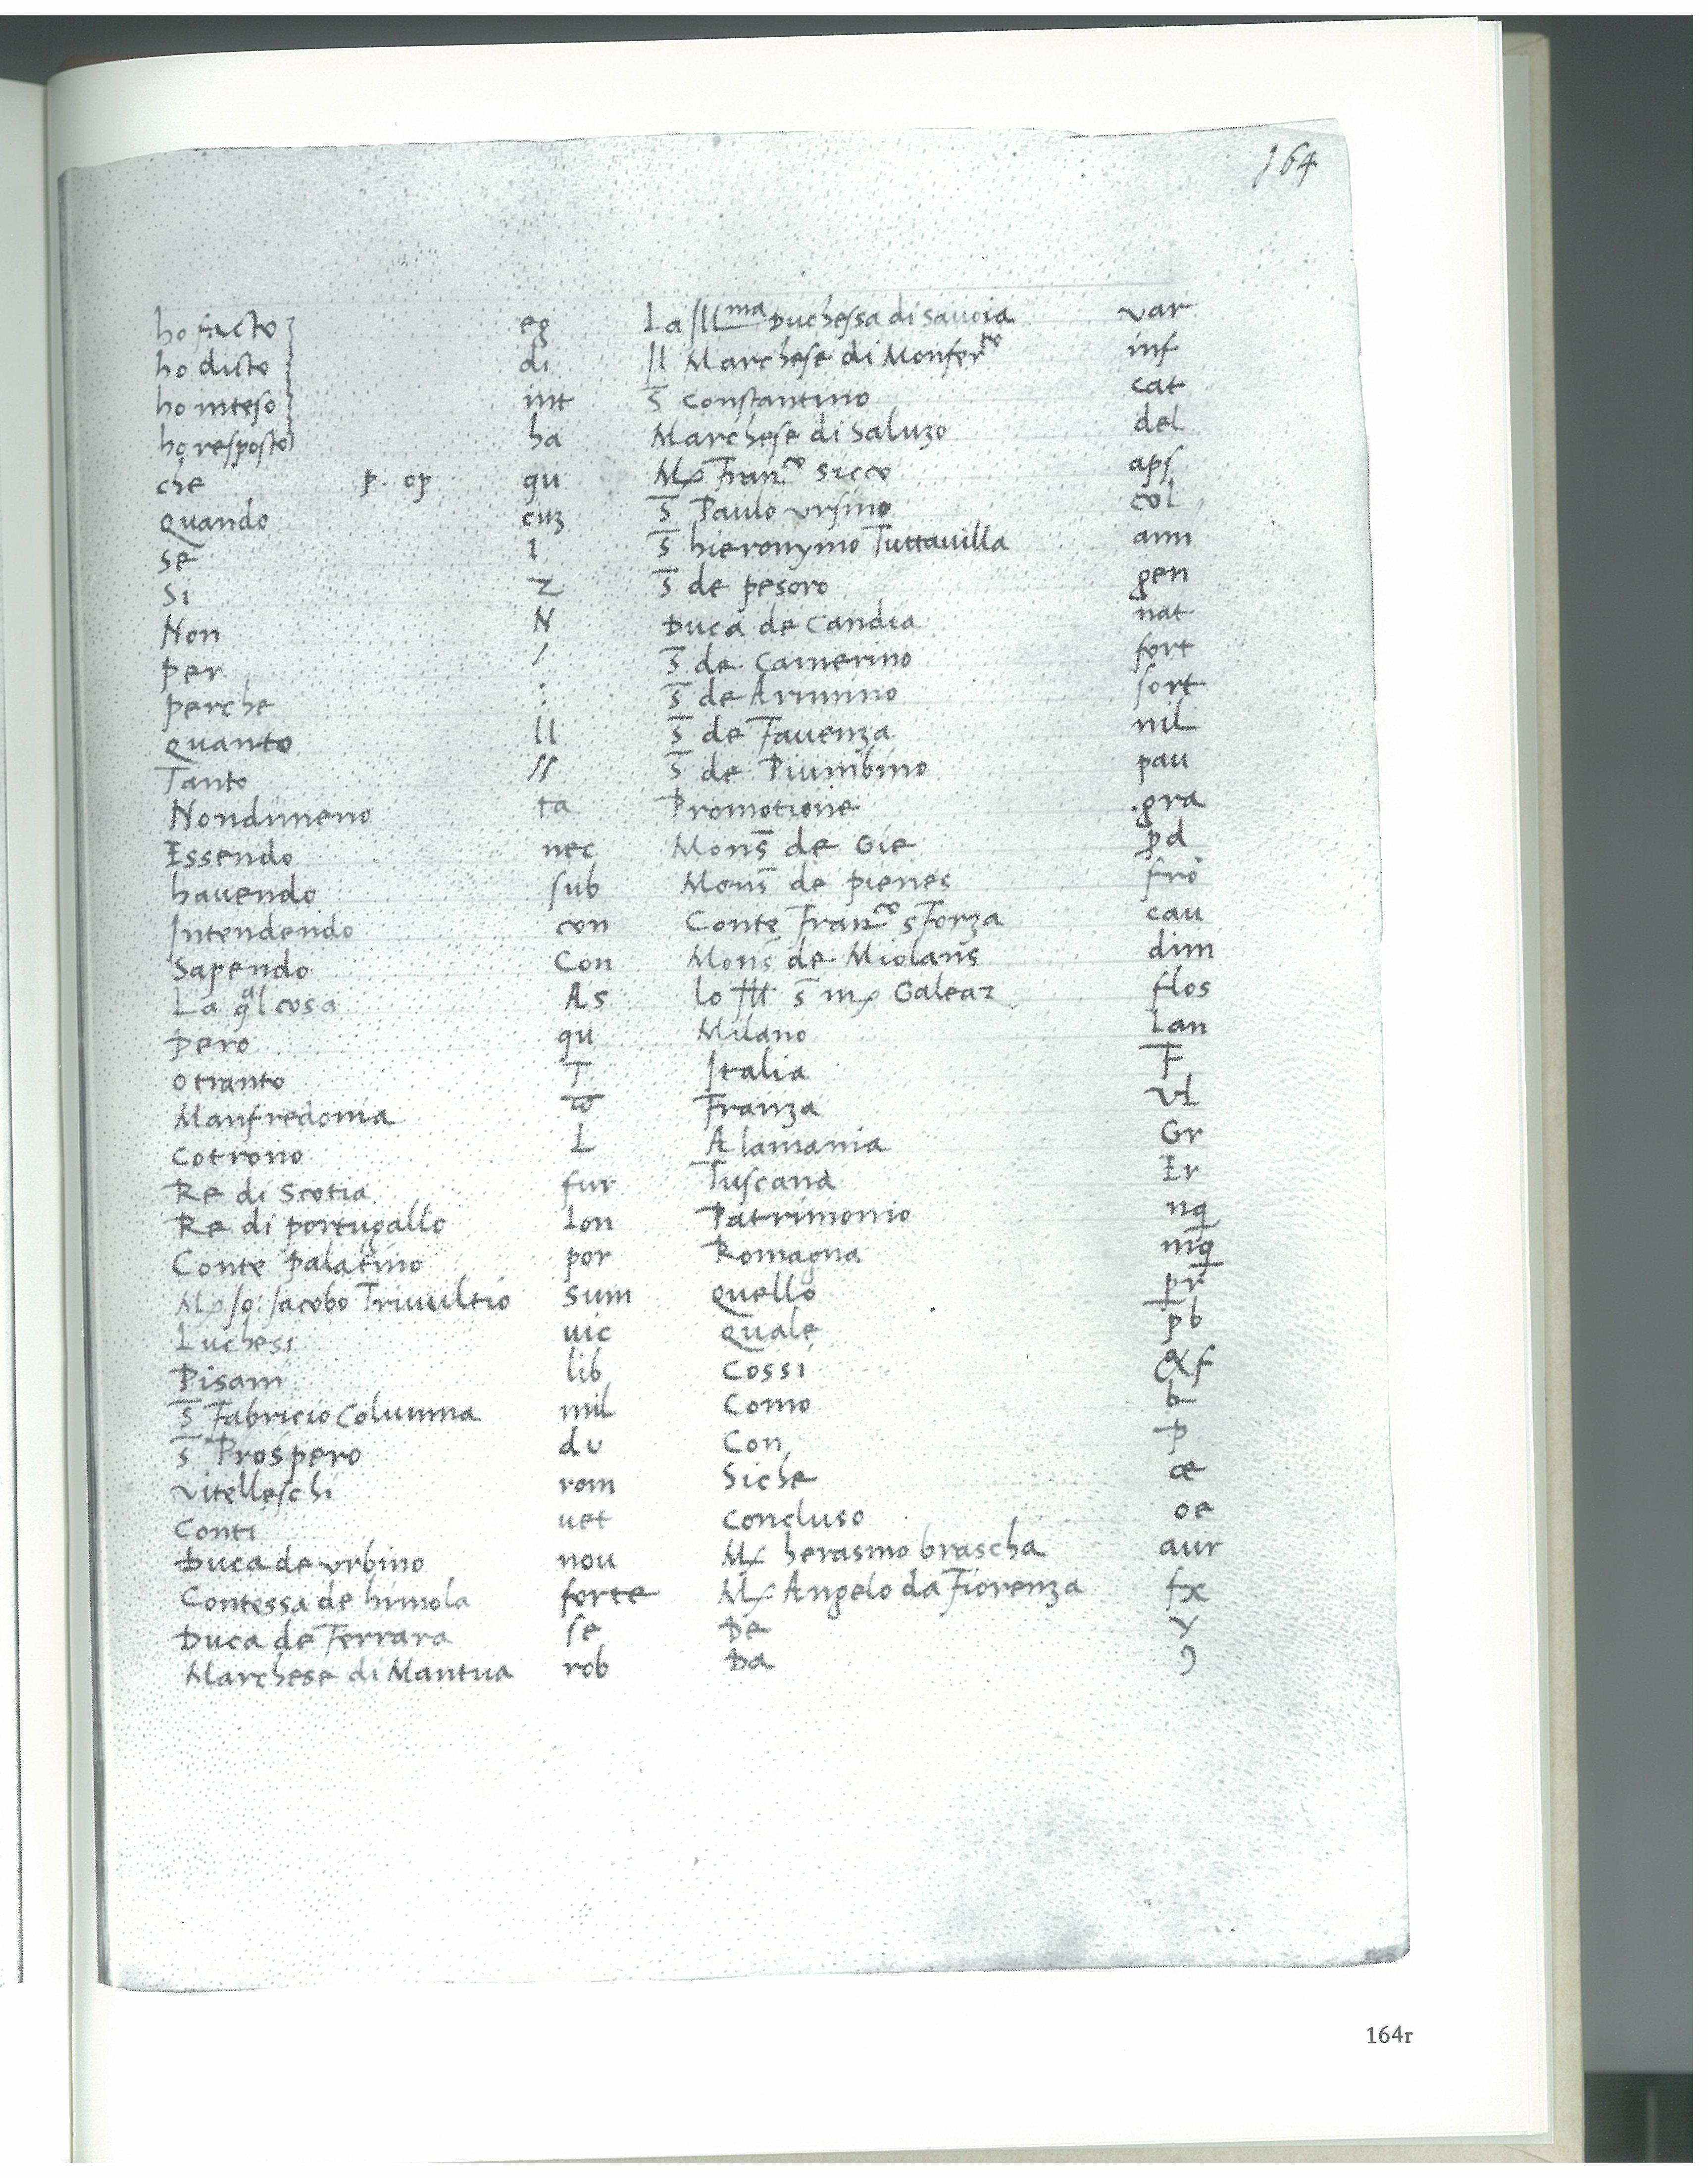 164
ho facto eg La Ill.ma Duchessa di Savoia var
ho dicto di Il Marchese di Monfer.to inf
ho inteso int S̄ Constantino cat
ho resposto ha Marchese di Saluzo del
che p. op qu Mp Fran.co Sicco aps
Quando cuz S̄ Paulo Ursino col
Se 1 S̄ hieronymo Tuttavilla ann
Si Z S̄ de pesoro gen
Non N Duca de Candia nat
per / S̄ de Camerino fort
perche : S̄ de Arimino sort
Quanto ll S̄ de Favenza nil
Tanto ss S̄ de Piumbino pau
Nondimeno ta Promotione .gra
Essendo nec Mons̄ de Gie pd
havendo sub Mons̄ de pienes fro
Intendendo con Conte Fran.co Sforza cau
Sapendo Con Mons̄ de Miolans dim
La qal cosa As lo S̄ mp Galeaz flos
Pero qu Milano Lan
Otranto T Italia F
Manfredonia Franza vl
Cotrono L Alamania Gr
Re di Scotia fur Tuscana Er
Re di portugallo Lon Patrimonio nq
Conte Palatino por Romagna mq
Mp Jo: Jacobo Trivultio sum quello pr
Luchesi uic Quale pb
Pisani lib Cossi f
S̄ Fabricio Columna mil Como b
S̄ Prospero du Con P
Vitelleschi rom Siche æ
Conti uet Concluso oe
Duca de Urbino nou M herasmo brascha aur
Contessa de himola forte M Angelo da Fiorenza fx
Duca de Ferrara se De y
Marchese di Mantua rob Da
164r